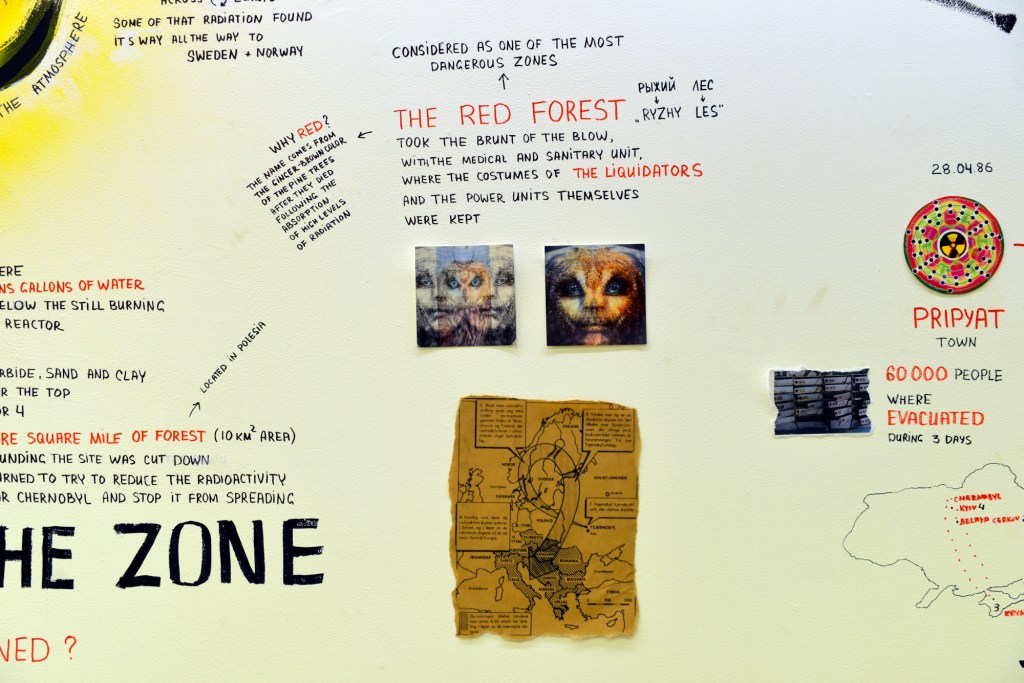 SOME OF THAT RADIATION FOUND
IT'S WAY ALL THE WAY TO
SWEDEN + NORWAY
THE ATMOSPHERE
CONSIDERED AS ONE OF THE MOST
DANGEROUS ZONES
РЫЖИЙ ЛЕС
THE RED FOREST „RYZHY LES"
TOOK THE BRUNT OF THE BLOW,
WITH THE MEDICAL AND SANITARY UNIT,
WHERE THE COSTUMES OF THE LIQUIDATORS
AND THE POWER UNITS THEMSELVES
WERE KEPT
WHY RED?
THE NAME COMES FROM
THE GINGER-BROWN COLOR
OF THE PINE TREES
AFTER THEY DIED
FOLLOWING THE
ABSORPTION
OF HIGH LEVELS
OF RADIATION
ERE
NS GALLONS OF WATER
ELOW THE STILL BURNING
REACTOR
LOCATED IN POLESIA
RBIDE, SAND AND CLAY
R THE TOP
OR 4
RE SQUARE MILE OF FOREST (10 KM² AREA)
UNDING THE SITE WAS CUT DOWN
RNED TO TRY TO REDUCE THE RADIOACTIVITY
OR CHERNOBYL AND STOP IT FROM SPREADING
HE ZONE
NED ?
28.04.86
PRIPYAT
TOWN
60 000 PEOPLE
WHERE
EVACUATED
DURING 3 DAYS
CHERNOBYL
KYIV 4
BELAYA CERKOV
3